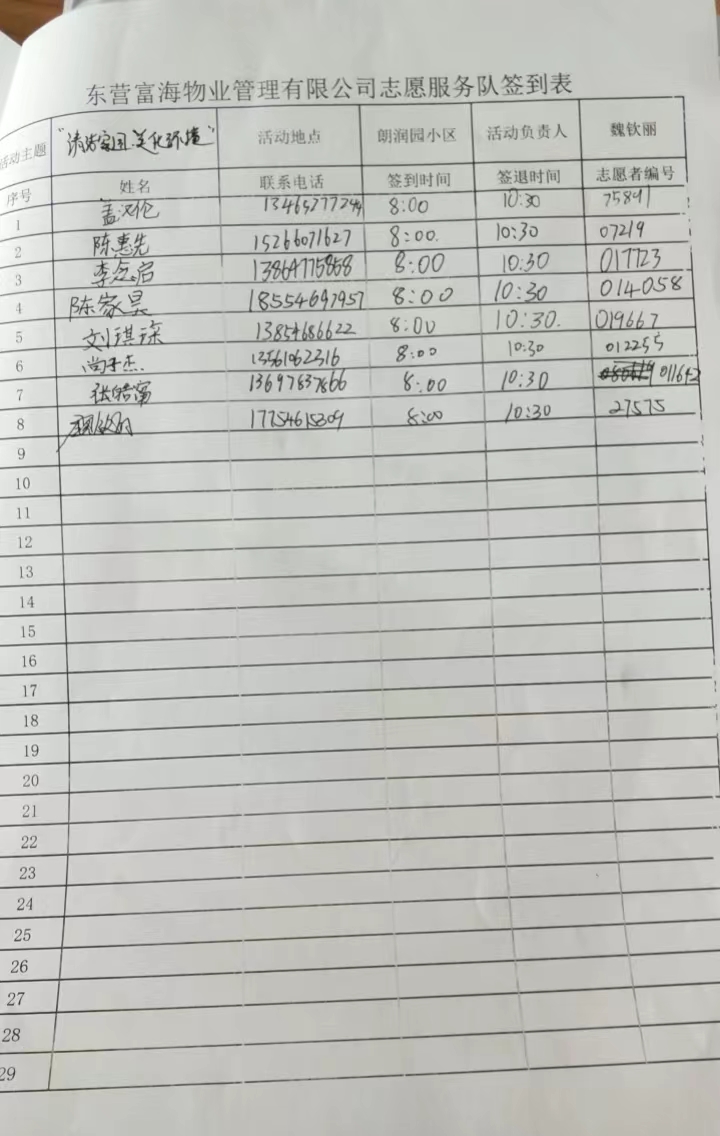 东营富海物业管理有限公司志愿服务队签到表
活动主题 "清洁家园 美化环境" 活动地点 朗润园小区 活动负责人 魏钦丽
序号 姓名 联系电话 签到时间 签退时间 志愿者编号
1 盖汉伦 8:00 10:30 75891
2 陈惠先 15266071627 8:00. 10:30 07219
3 李念启 13864775868 8:00 10:30 017723
4 陈家昊 18554697957 8:00 10:30 014058
5 刘琪琛 13854686622 8:00 10:30. 019667
6 尚于杰 13561062316 8:00 10:30 012255
7 13697837666 8:00 10:30 011642
8 17754615309 8:00 10:30 27575
9
10
11
12
13
14
15
16
17
18
19
20
21
22
23
24
25
26
27
28
29